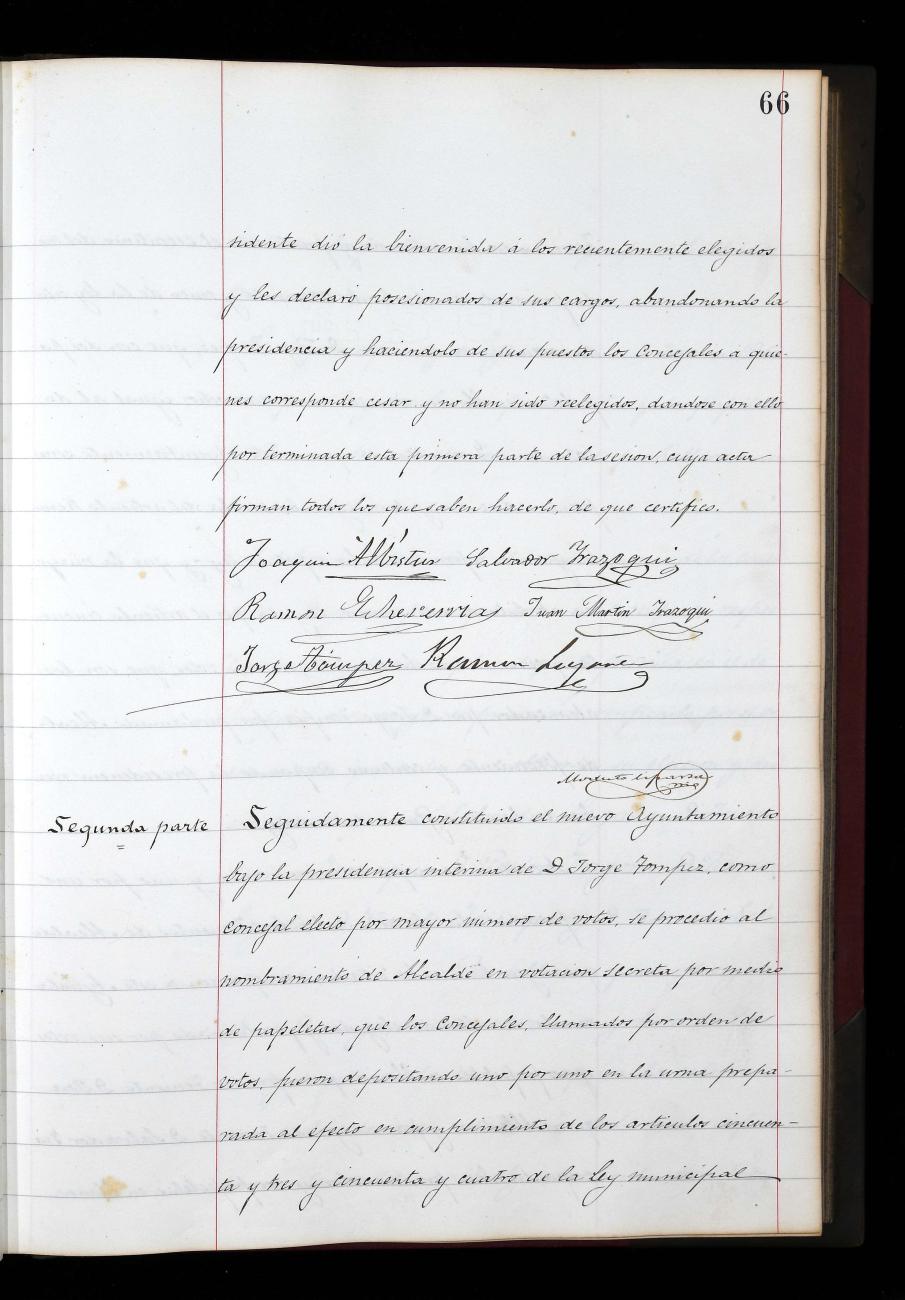 66
sidente dió la bienvenida á los recientemente elegidos
y les declaró posesionados de sus cargos, abandonando la
presidencia y haciendolo de sus puestos los Concejales a quie-
nes corresponde cesar y no han sido reelegidos, dandose con ello
por terminada esta primera parte de la sesion, cuya acta
firman todos los que saben hacerlo, de que certifico.
Joaquin Albistur Salvador Irazoqui
Ramon Echeverria Juan Martin Irazoqui
Jorge Tompez Ramon
Segunda parte
Seguidamente constituido el nuevo Ayuntamiento
bajo la presidencia interina de D Jorge Tompez, como
concejal electo por mayor número de votos, se procedio al
nombramiento de Alcalde en votacion secreta por medio
de papeletas, que los Concejales, llamados por orden de
votos, fueron depositando uno por uno en la urna prepa-
rada al efecto en cumplimiento de los articulos cincuen-
ta y tres y cincuenta y cuatro de la Ley municipal